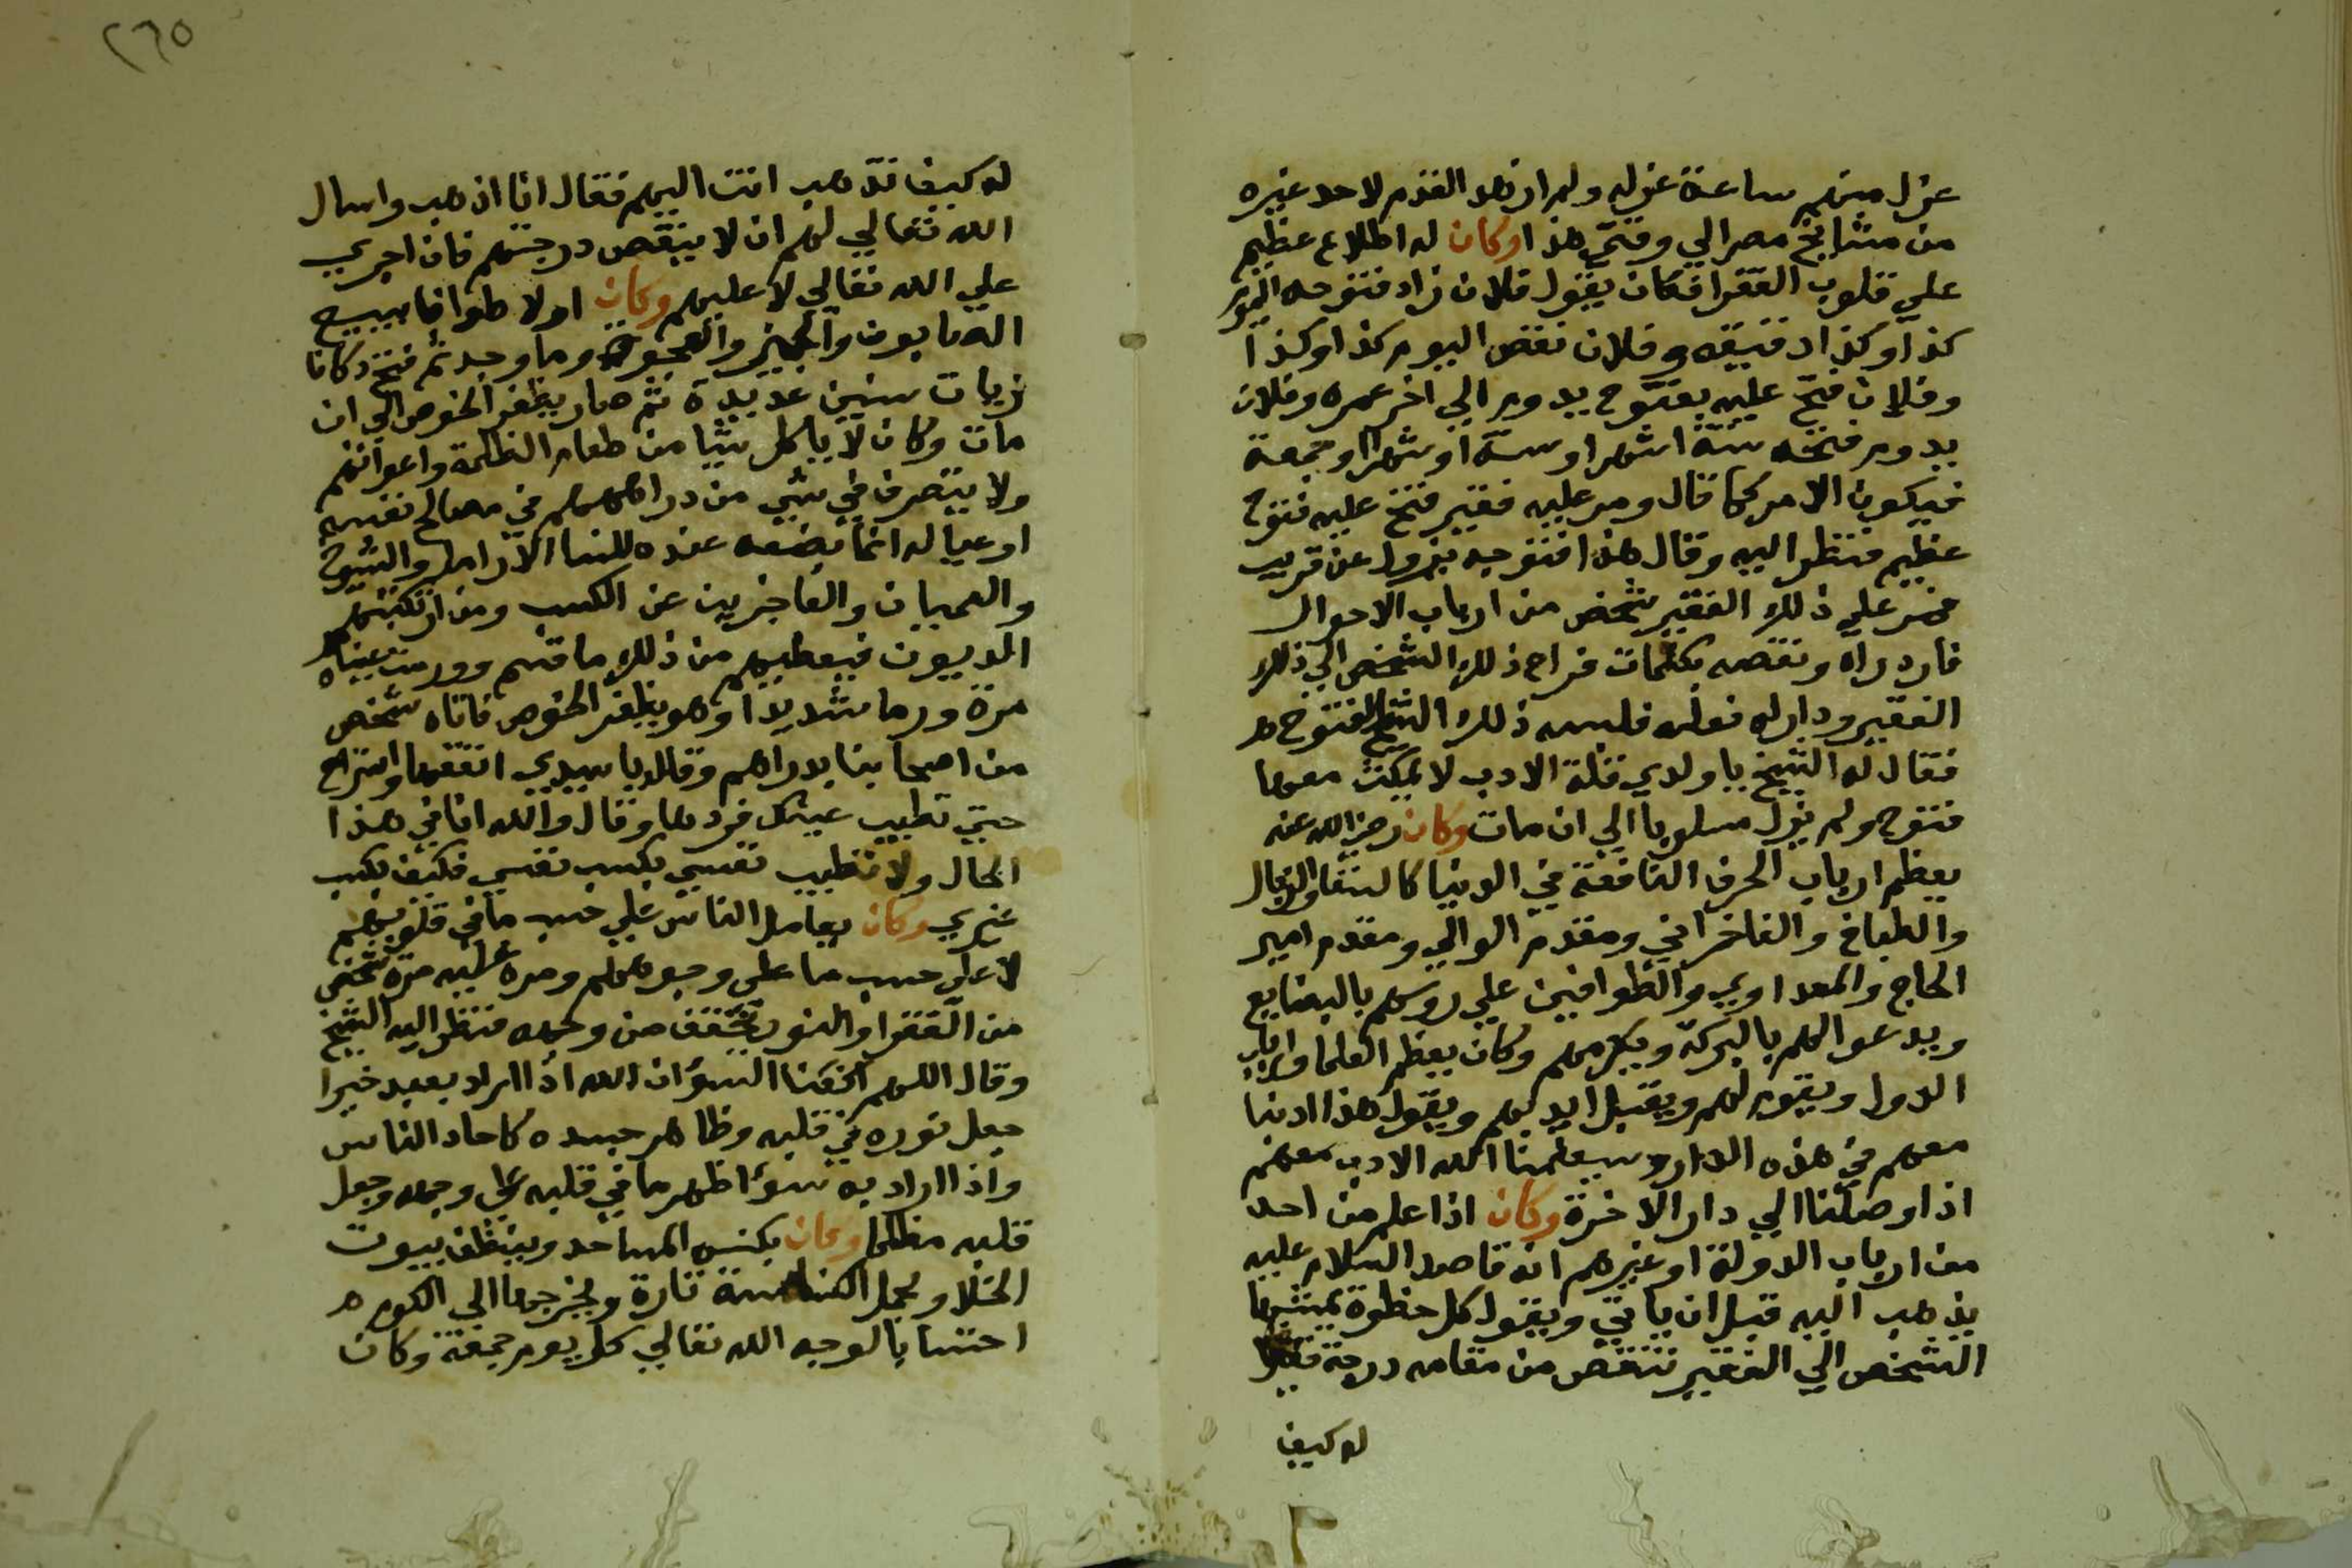 عزل منهم ساعة عزله ولم ار هذا القدم لاحد غيره
من مشايخ مصر الي وقتي هذا وكان له اطلاع عظيم
علي قلوب الفقرا فكان يقول فلان زاد فتوحه اليوم
كذا وكذا دقيقه وفلان نقص اليوم كذا وكذا
وفلان فتح عليه بفتوح يدوم الي اخر عمره وفلان
يدوم فتحه ستة اشهر او سنة او شهرا او جمعة
فيكون الامر كما قال ومر عليه فقير فتح عليه فتوح
عظيم فنظر اليه وقال هذا فتوحه يزول عن قريب
فمر علي ذلك الفقير شخص من ارباب الاحوال
فازدراه ونقصه بكلمات فراح ذلك الشخص الي ذلك
الفقير ودار له نعله فلبسه ذلك الشيخ الفتوح
فقال له الشيخ يا ولدي قلة الادب لا يمكث معها
فتوح ولم يزل مسلوبا الي ان مات وكان رضي الله عنه
يعظم ارباب الحرف النافعة في الدنيا كالسقا والزبال
والطباخ والفاخراني ومقدم الوالي ومقدم امير
الحاج والمعداوي والطوافين علي روسهم بالبضايع
ويدعوا لهم بالبركة ويكرمهم وكان يعظم العلما وارباب
الدول ويقوم لهم ويقبل ايديهم ويقول هذا ادبنا
معهم في هذه الدار وسيعلمنا الله الادب معهم
اذا وصلنا الي دار الاخرة وكان اذا علم من احد
من ارباب الدولة او غيرهم انه قاصد السلام عليه
يذهب اليه قبل ان ياتي ويقول كل خطوة يمشيها
الشخص الي الفقير تنقص من مقامه درجة فقيل
له كيف
٢٦٥
له كيف تذهب انت اليهم فقال انا اذهب واسال
الله تعالي لهم ان لا ينقص درجتهم فان اجري
علي الله تعالي لا عليهم وكان اولا طوافا يبيع
الصابون والجميز والعجوة وما وجد ثم فتح دكانا
زيات سنين عديدة ثم صار يظفر الخوص الي ان
مات وكان لا ياكل شيا من طعام الظلمة واعوانهم
ولا يتصرف في شي من دراهمهم في مصالح نفسه
او عياله انما يضعه عنده للنسا الارامل والشيوخ
والعميان والعاجزين عن الكسب ومن ارتكبتهم
المديون فيعطيهم من ذلك ما قسم وورمت عيناه
مرة ورما شديدا وهو يظفر الخوص فاتاه شخص
من اصحابنا بدراهم وقال يا سيدي انفقها واسترح
حتي تطيب عينك فردها وقال والله انا في هذا
الحال ولا تطيب نفسي بكسب نفسي فكيف بكسب
غيري وكان يعامل الناس علي حسب ما في قلوبهم
لا علي حسب ما علي وجوههم ومره عليه مرة شخص
من الفقرا والنور يخفق من وجهه فنظر اليه الشيخ
وقال اللهم اكفنا السوء ان الله اذا اراد بعبد خيرا
جعل نوره في قلبه وظاهر جسده كاحاد الناس
واذا اراد به سوءا اظهر ما في قلبه علي وجهه وجعل
قلبه مظلما وكان يكنس المساجد وينظف بيوت
الخلا ويحمل الكناسة تارة ويخرجها الي الكوم
احتسابا لوجه الله تعالي كل يوم جمعة وكان